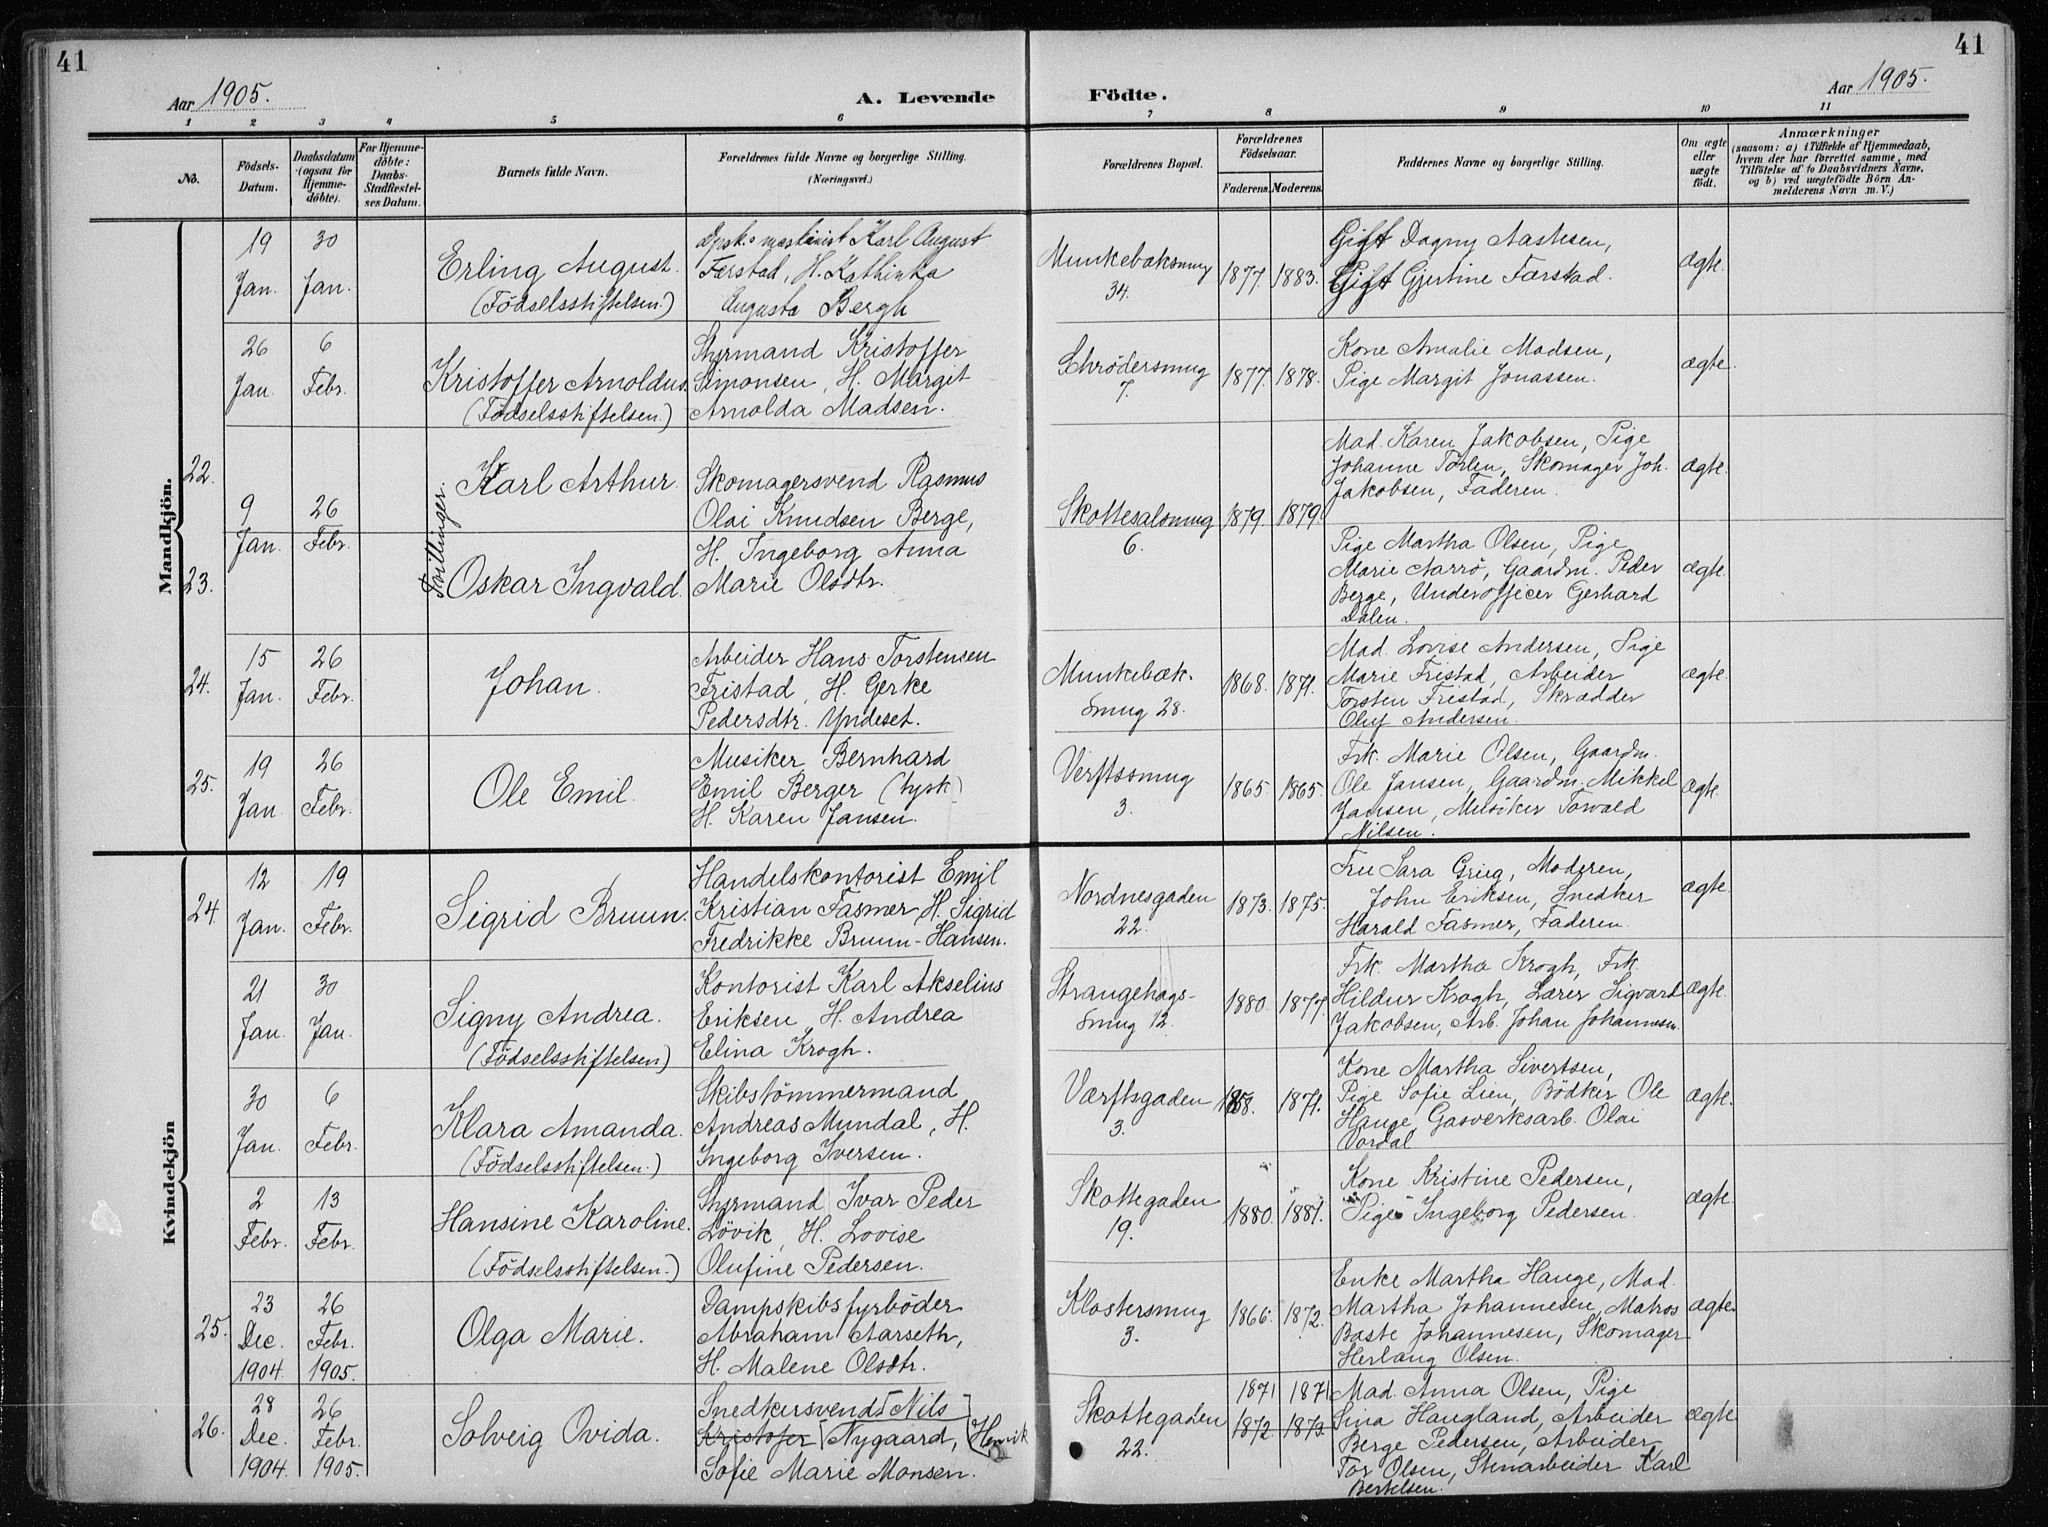 41
41
Aar 1905.
A. Levende
Födte.
Aar 1905.
1 2 3 4 5 6 7 8 9 10 11
No.
Födsels-Datum.
Daabsdatum (ogsaa for Hjemmedöbte).
For Hjemmedöbte: Daabs-Stadfæstelses Datum.
Barnets fulde Navn.
Forældrenes fulde Navne og borgerlige Stilling.
(Næringsvei.)
Forældrenes Bopæl.
Forældrenes Födselsaar.
Faderens. Moderens.
Faddernes Navne og borgerlige Stilling.
Om ægte eller uægte födt.
Anmærkninger
(saasom: a) i Tilfælde af Hjemmedaab,
hvem der har forrettet samme, med
Tilföielse af to Daabsvidners Navne,
og b) ved uægtefödte Börn Anmelderens Navn m. V.)
Mandkjön.
19 Jan. 30 Jan.
Erling August.
(Födselsstiftelsen.)
Karl August
Færstad, H. Kathinka
Augusta Bergh
Munkebæksmug
34.
1877. 1883.
Gift Dagny Aastesen,
Gift Gjertine Færstad.
ægte.
26 Jan. 6 Febr.
Kristoffer Arnoldus.
(Födselsstiftelsen.)
Styrmand Kristoffer
Simonsen, H. Margit
Arnolda Madsen.
Schrödersmug
7.
1877. 1878.
Kone Amalie Madsen,
Pige Margit Jonassen.
ægte.
22.
Tvillinger.
9 Jan. 26 Febr.
Karl Arthur.
Skomagersvend Rasmus
Olai Knudsen Berge,
H. Ingeborg Anna
Marie Olsdtr.
Skottesalsmug
6.
1879. 1879.
Mad. Karen Jakobsen, Pige
Johanne Torlen, Skomager Joh.
Jakobsen, Faderen.
ægte.
23.
Oskar Ingvald.
Pige Martha Olsen, Pige
Marie Aarrö, Gaardm. Peder
Berge, Underofficer Gerhard
Dalen.
ægte.
24.
15 Jan. 26 Febr.
Johan.
Arbeider Hans Torstensen
Fristad, H. Gerke
Pedersdtr. Yndeset.
Munkebæk-
smug 28.
1868. 1871.
Mad. Lovise Andersen, Pige
Marie Fristad, Arbeider
Torsten Fristad, Skrædder
Oluf Andersen.
ægte.
25.
19 Jan. 26 Febr.
Ole Emil.
Musiker Bernhard
Emil Berger (tysk)
H. Karen Jansen.
Verftssmug
3.
1865. 1865.
Frk. Marie Olsen, Gaardm.
Ole Jansen, Gaardm. Mikkel
Jansen, Musiker Torvald
Nilsen.
ægte.
Kvindekjön
24.
12 Jan. 19 Febr.
Sigrid Bruun.
Handelskontorist Emil
Kristian Fasmer, H. Sigrid
Fredrikke Bruun-Hansen.
Nordnesgaden
22.
1873. 1875.
Fru Sara Grieg, Moderen,
John Eriksen, Snedker
Harald Fasmer, Faderen.
ægte.
21 Jan. 30 Jan.
Signy Andrea.
(Födselsstiftelsen)
Kontorist Karl Akselius
Eriksen, H. Andrea
Elina Krogh.
Strangehags-
smug 12.
1880. 1877.
Frk. Martha Krogh, Frk.
Hildur Krogh, Lærer Sigvard
Jakobsen, Arb. Johan Johannesen.
ægte.
30 Jan. 6 Febr.
Klara Amanda.
(Födselsstiftelsen.)
Skibstömmermand
Andreas Mundal, H.
Ingeborg Iversen.
Værftsgaden
3.
1871.
Kone Martha Sivertsen,
Pige Sofie Lien, Bödker Ole
Hauge, Gasverksarb. Olai
Vordal
ægte.
2 Febr. 13 Febr.
Hansine Karoline.
(Födselsstiftelsen.)
Styrmand Ivar Peder
Lövik, H. Lovise
Olufine Pedersen.
Skottegaden
19.
1880. 1881.
Kone Kristine Pedersen,
Pige Ingeborg Pedersen.
ægte.
25.
23 Dec. 1904 26 Febr. 1905.
Olga Marie.
Dampskibsfyrböder
Abraham Aarseth,
H. Malene Olsdtr.
Klostersmug
3.
1866. 1872.
Enke Martha Hauge, Mad.
Martha Johannesen, Matros
Baste Johannesen, Skomager
Herlaug Olsen.
ægte.
26.
28 Dec. 1904. 26 Febr. 1905.
Solveig Ovida.
Snedkersvend [Nils]
Kristofer [Nygaard, (Henrik
Sofie Marie Monsen.
Skottegaden
22.
1871 1871
1872 1873
Mad. Anna Olsen, Pige
Sina Haugland, Arbeider
Berge Pedersen, Arbeider
Tor Olsen, Stenarbeider Karl
Bertelsen.
ægte.